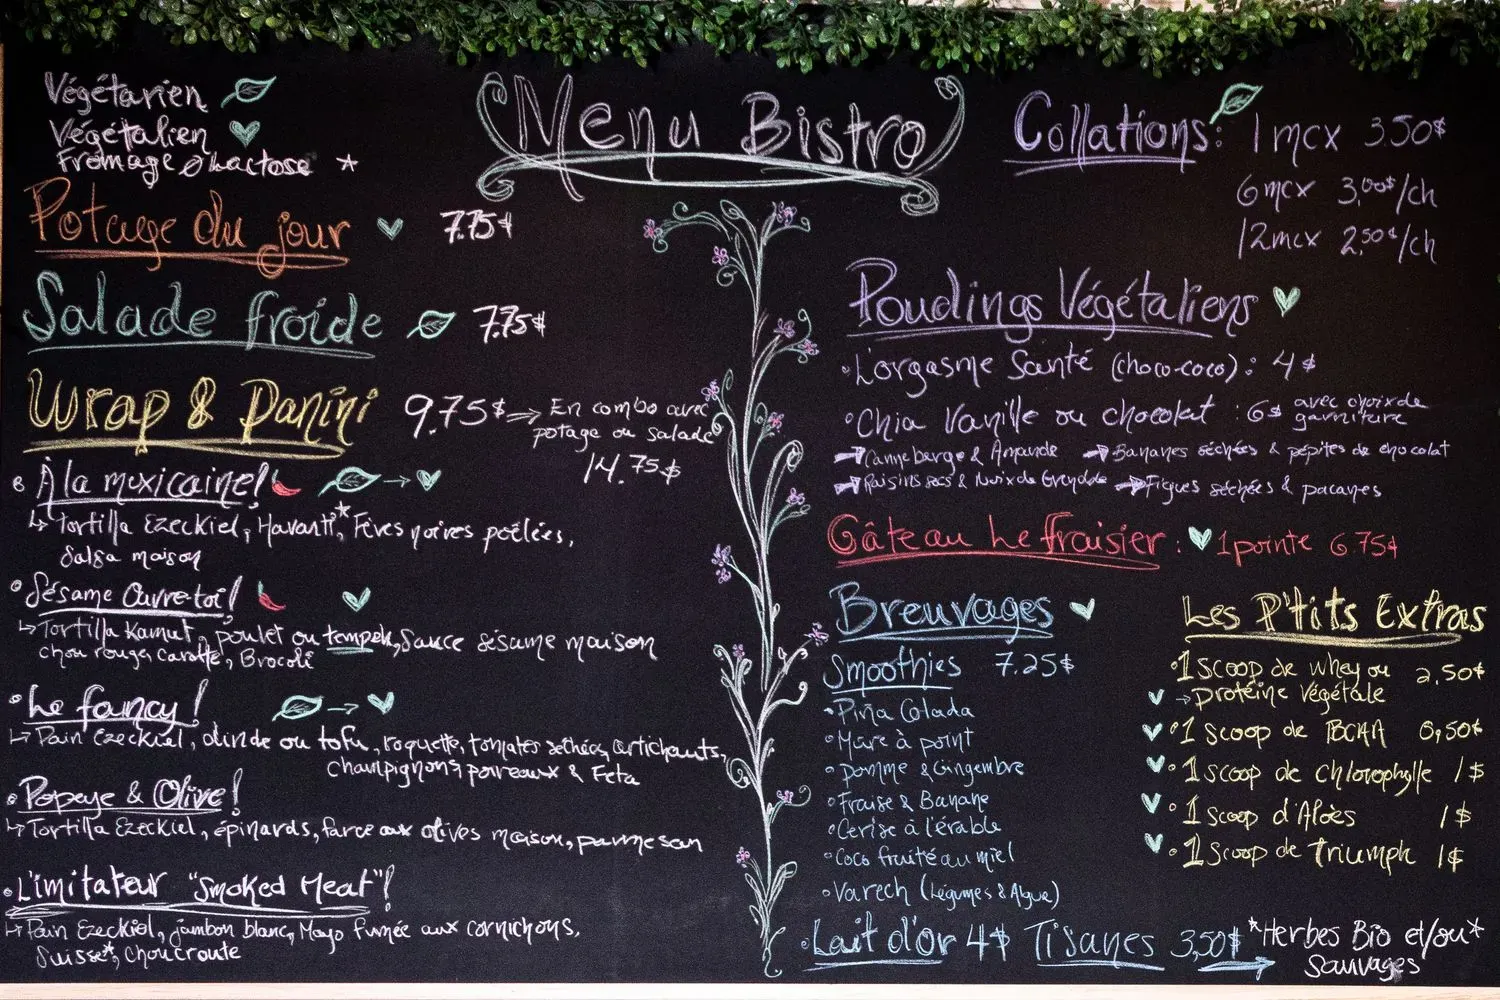 Menu Bistro
Végétarien
Végétalien
Fromage ø Lactose *
Potage du jour 7.75$
Salade froide 7.75$
Wrap & Panini 9.75$ ⇒ En combo avec
potage ou salade
14.75$
• À la mexicaine! →
↳ Tortilla Ezeckiel, Havarti*, Fèves noires poêlées,
Salsa maison
• Sésame Ouvre-toi!
↳ Tortilla Kamut, poulet ou tempeh, Sauce sésame maison
chou rouge, carotte, Brocoli
• Le fancy! →
↳ Pain Ezeckiel, dinde ou tofu, roquette, tomates séchées, artichauts,
champignons, poireaux & Feta
• Popeye & Olive!
↳ Tortilla Ezeckiel, épinards, farce aux olives maison, parmesan
• L'imitateur "Smoked Meat"!
↳ Pain Ezeckiel, jambon blanc, Mayo fumée aux cornichons,
Suisse*, choucroute
Collations: 1 mcx 3.50$
6 mcx 3,00$/ch
12 mcx 2,50$/ch
Poudings Végétaliens
• L'orgasme Santé (choco-coco): 4$
• Chia Vanille ou chocolat : 6$ avec choix de
garniture
→ Canneberge & Amande → Bananes séchées & pépites de chocolat
→ Raisins secs & Noix de Grenoble → Figues séchées & pacanes
Gâteau Le fraisier : 1 pointe 6.75$
Breuvages
Smoothies 7.25$
• Piña Colada
• Mûre à point
• Pomme & Gingembre
• Fraise & Banane
• Cerise à l'érable
• Coco fruité au miel
• Varech (Légumes & Algue)
• Lait d'or 4$ Tisanes 3,50$ → *Herbes Bio et/ou*
Sauvages
Les P'tits Extras
• 1 scoop de whey ou 2,50$
→ protéine végétale
• 1 scoop de BCAA 0,50$
• 1 scoop de chlorophylle 1$
• 1 scoop d'Aloès 1$
• 1 scoop de Triumph 1$